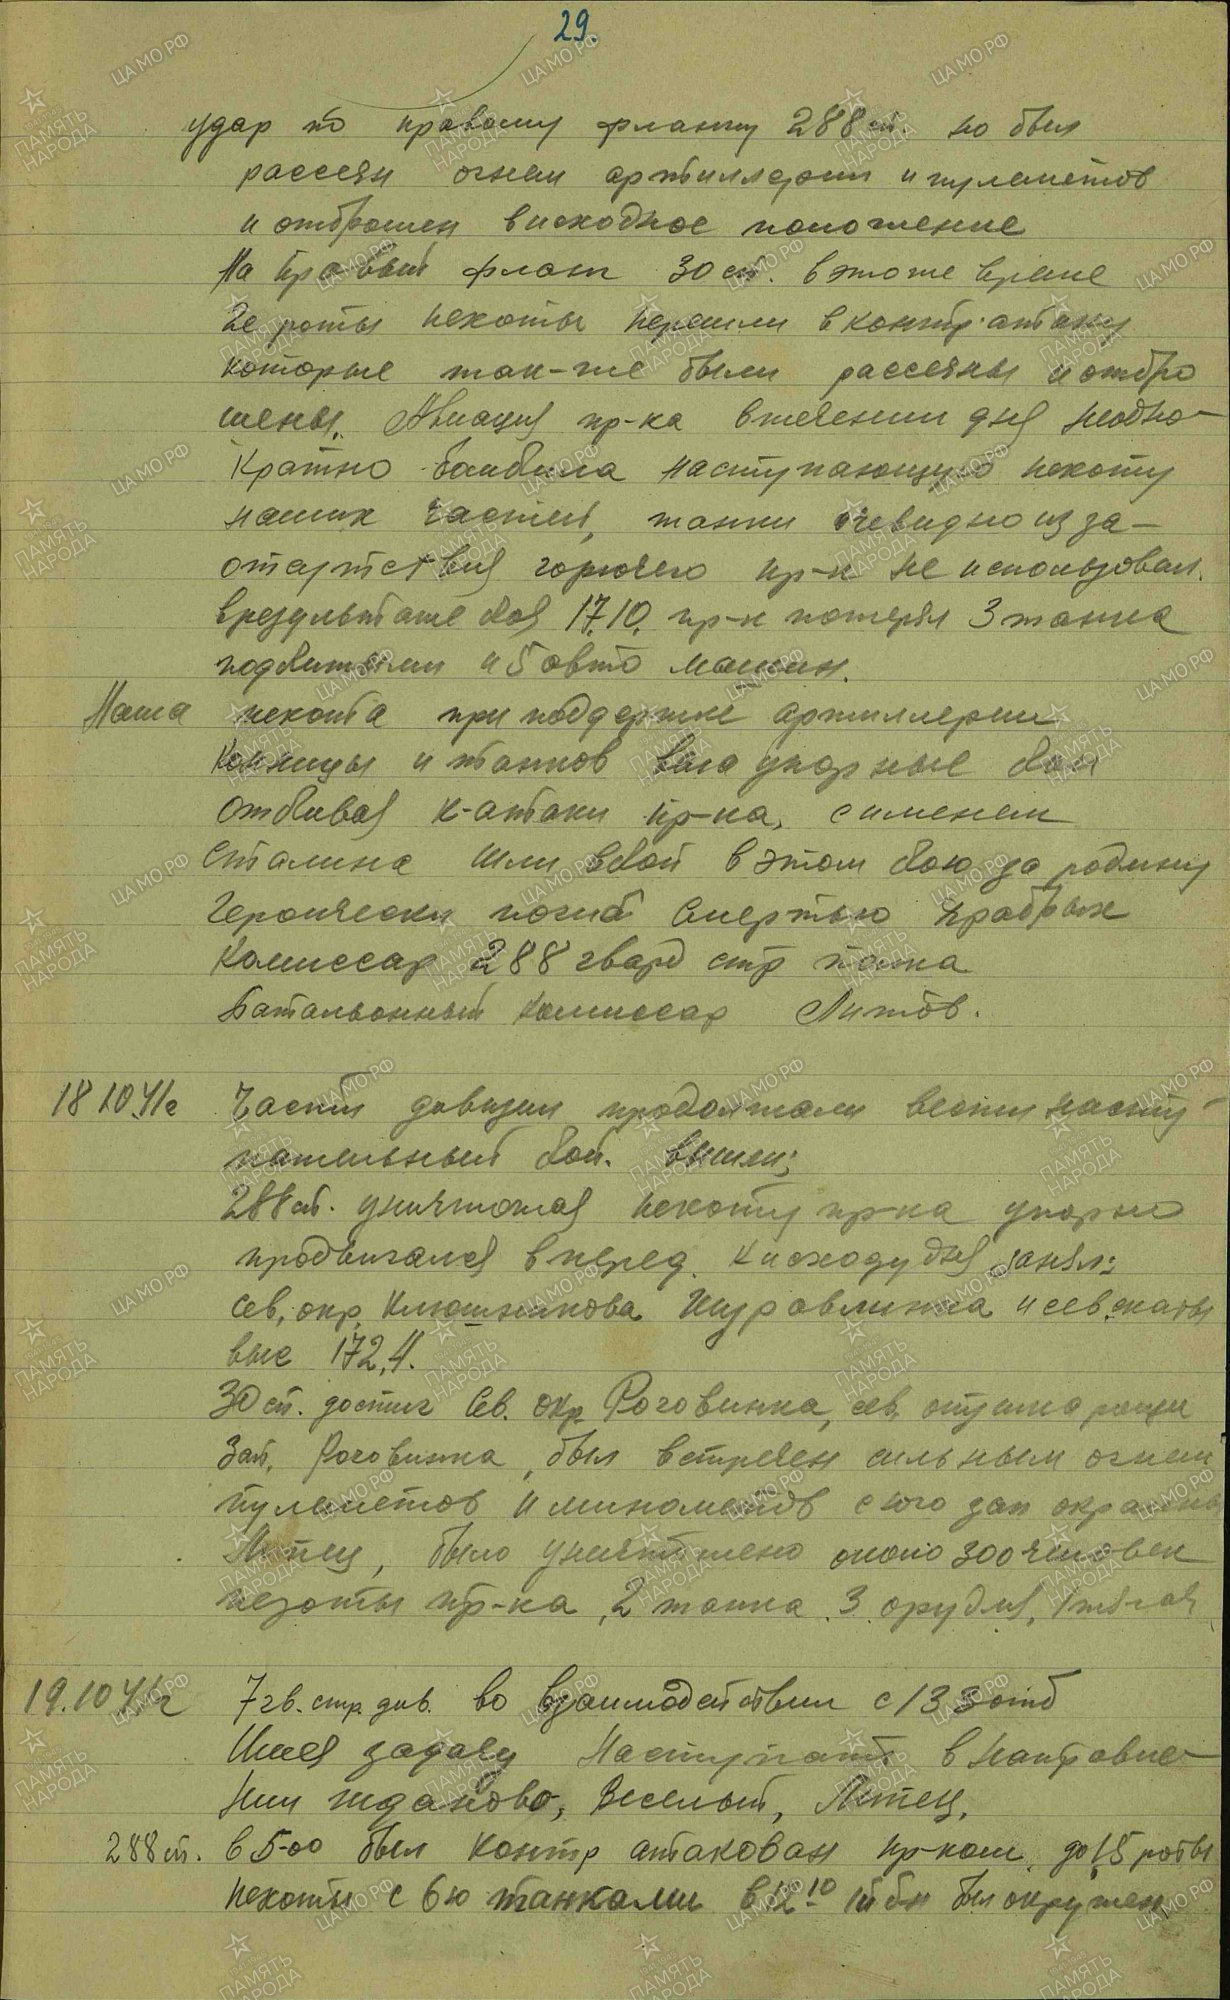 29.
удар по правому флангу 288 сп. но был
рассеян огнем артиллерии и пулеметов
и отброшен в исходное положение
На правый фланг 30 сп. в этоже время
2е роты пехоты перешли в контр-атаку
которые так-же были рассеяны и отбро
шены. Авиация пр-ка в течении дня неодно-
кратно бомбила наступающую пехоту
наших частей, танки очевидно из за-
отсутствия горючего пр-к не использовал.
в результате боя 17.10. пр-к потерял 3 танка
подбитыми и 5 авто машин.
Наша пехота при поддержке артиллерии
конницы и танков вела упорные бои
отбивая к-атаки пр-ка, с именем
Сталина шли в бой в этом бою за родину
героически погиб смертью храбрых
Комиссар 288 гвард стр полка
Батальонный комиссар Литов.
18 10.41г Части дивизии продолжали вести насту-
пательный бой. вышли;
288 сп. уничтожая пехоту пр-ка упорно
продвигался вперед. К исходу дня занял:
сев, окр. Клюшникова Журавлинка и сев. скаты
выс 172,4.
30 сп. достиг Сев. окр. Роговинка, сев. опушка рощи
Зап. Роговинка, был встречен сильным огнем
пулеметов и минометов с юго зап окраины
Липец, было уничтожено около 300 человек
пехоты пр-ка, 2 танка 3 орудия, 1 тягач
19.10 41г 7 гв. стр. див. во взаимодействии с 133 отб
Имея задачу наступать в направле-
нии Жданово, Веселый, Липец.
288 сп. в 5-00 был контр атакован пр-ком до 1,5 роты
пехоты с 6ю танками в 12 10 1й б-н был окружен
ЦА МО РФ
ПАМЯТЬ НАРОДА